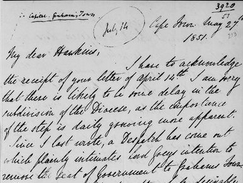 3920
Copied, Grahams Town
July, 14
Cape Town May 27th
1851.
My dear Hawkins,
I have to acknowledge
the receipt of your letter of April 14th. I am sorry
that there is likely to be some delay in the
subdivision of the Diocese, as the importance
of the step is daily growing more apparent.
Since I last wrote, a Despatch has come out
which plainly intimates Lord Grey's intention to
remove the Seat of Government to Grahams Town,